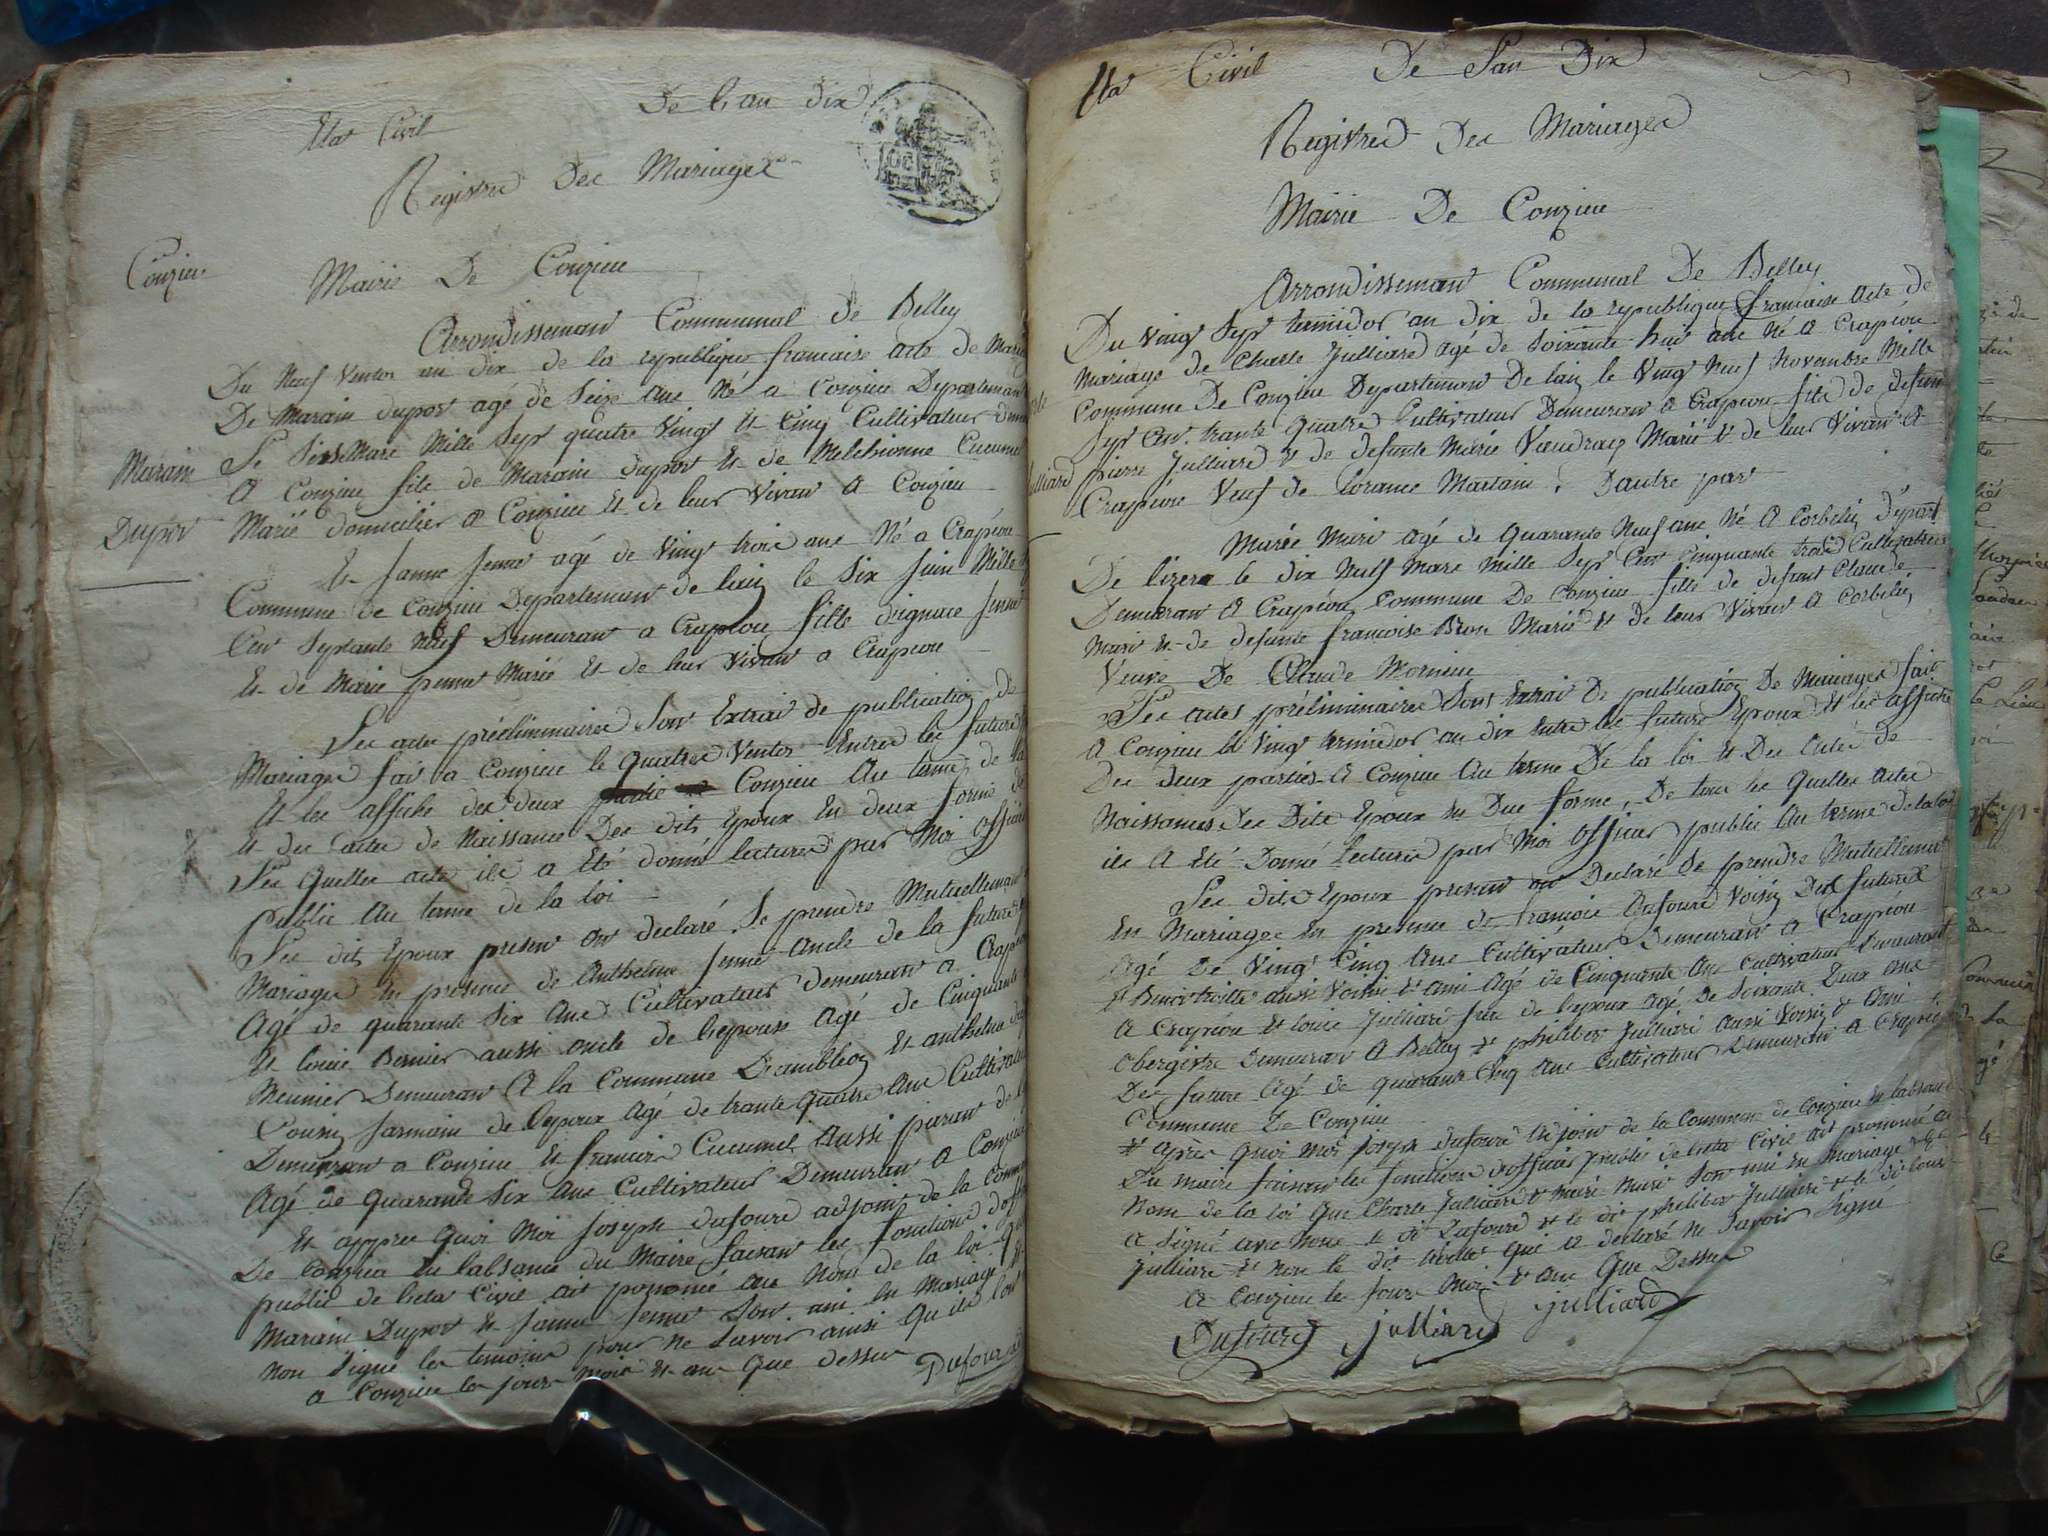 De l'an dix
Etat Civil
Registre Des Mariages
Conzieu
Mairie De Conzieu
Arrondissemant Communal de Belley
Du Neuf Ventos an dix de la republique francaise acte de Maria
De Marain dupor age de Seize ans Né a Conzieu Departeman
Le Mars Mille Sept quatre Vingt Et Cinq Cultivateur
Marain
a Conzieu fils de Marain dupor Et de Melchionne Cucumel
Dupor
Marié domicilier a Conzieu Et de leur Vivan a Conzieu
Et Janne Jenne agé de Vingt trois ans Né a Crapéou
Commune de Conzieu Departeman de lain le Six Juin Mille
Cen Septante Neuf Demeuran a Crapiou fille dignace Jenne
Et de Marie Marié Et de leur Vivan a Crapeou
Les actes préliminaires Son Extrai de publication de
Mariages fai a Conzieu le quatre Ventos Entres les futures
Et les affiche des deux Conzieu Au terme de la
Et des actes de Naissance Des dits Epoux En deux forme de
Les quelles acte ils a Eté donné lectures par Moi officier
public Au terme de la loi
Les dits Epoux presen on declaré Se prendre Mutuelleman
Mariages En presence de Anthelme Jenne oncle de la future
Agé de quarante Six Ans Cultivateur demeuran a Crapeou
Et louis Bernier aussi oncle de lepouse agé de Cinquante
Meunier Demeuran A la Commune Dambleon Et anthelme
Cousin Jarmain de lepoux Agé de trante quatre Ans Cultivateur
Demeuran a Conzieu Et francois Cucumel Aussi paran de
Agé de quarante Six Ans Cultivateur Demeuran A Conzieu
Et appres quoi Moi Joseph dufour adjoint de la Commune
De Conzieu En labsance du Maire faisan les fonctions dofficier
public de letat Civil ait prononcé au Nom de la loi que
Marain Dupor Et Janne Jenne Son uni En Mariage Et
non Signé les temoins pour ne Savoir ainsi qu ils lont
a Conzieu les jours mois Et an que dessus Dufour
Etat Civil De lan Dix
Registres Des Mariages
Mairie De Conzieu
Arrondisseman Communal De Belley
Du Vingt Sept termidor an dix de la republique francaise Acte de
Mariage de Charle Julliard agé de Soixante huit ans Né A Crapéou
Commune De Conzieu Departeman De lain le Vingt Neuf Novembre Mille
Sept Cen trante quatre Cultivateur Demeuran A Crapeou fils de defun
lliard
pierre Julliard & de defunte Marie Vaudray Marié & de leur Vivan A
Crapéou Veuf de lorance Martain, Dautre part
Marie Mure agé de quarante Neuf ans Né A Corbelin Départ
De lizere le dix Neuf Mars Mille Sept Cen Cinquante trois Cultivatrice
Demeuran A Crapéou Commune De Conzieu fille de defunt Claude
Mure & de defunte francoise Bron Marié & de leur Vivan A Corbelin
Veuve De Claude Mornieu
Les actes préliminaires Sont Extrai De publication De Mariages fait
A Conzieu le Vingt termidor an dix Entre les future Epoux Et les affiche
Des deux parties A Conzieu Au terme De la loi Et Des Actes de
Naissances Des Dits Epoux En Due forme, De tous les quelles actes
ils A Eté Donné Lectures par Moi officier public Au terme de la loi
Les dits Epoux presens on Declaré Se prendre Mutuelleman
En Mariages En presence de francois Dufour Voisin Des futures
Agé De Vingt Cinq Ans Cultivateur Demeuran A Crapeou
Et aussi Voisin & ami Agé de Cinquante Ans Cultivateur Demeurant
A Crapéou Et louis Julliard frere de lepoux Agé De Soixante Deux Ans
obergiste Demeuran A Belley & philiber Julliard Aussi Voisin & Ami
Des future Agé de quarante Cinq Ans Cultivateur Demeuran A Crapéou
Commune De Conzieu
& apres quoi Moi Joseph dufour Adjoint de la Commune de Conzieu En labsance
Du Maire faisan les fonctions dofficier public de leta Civil Ait prononcé au
Nom de la loi que Charle Julliard & Marie Mure Son uni En Mariage
a Signé avec Nous le dit Dufour Et le dit philiber Julliard & le dit louis
Julliard & non le dit qui a declaré ne Savoir Signé
A Conzieu les Jours Moi & an Que Dessus
Dufour Julliard Julliard